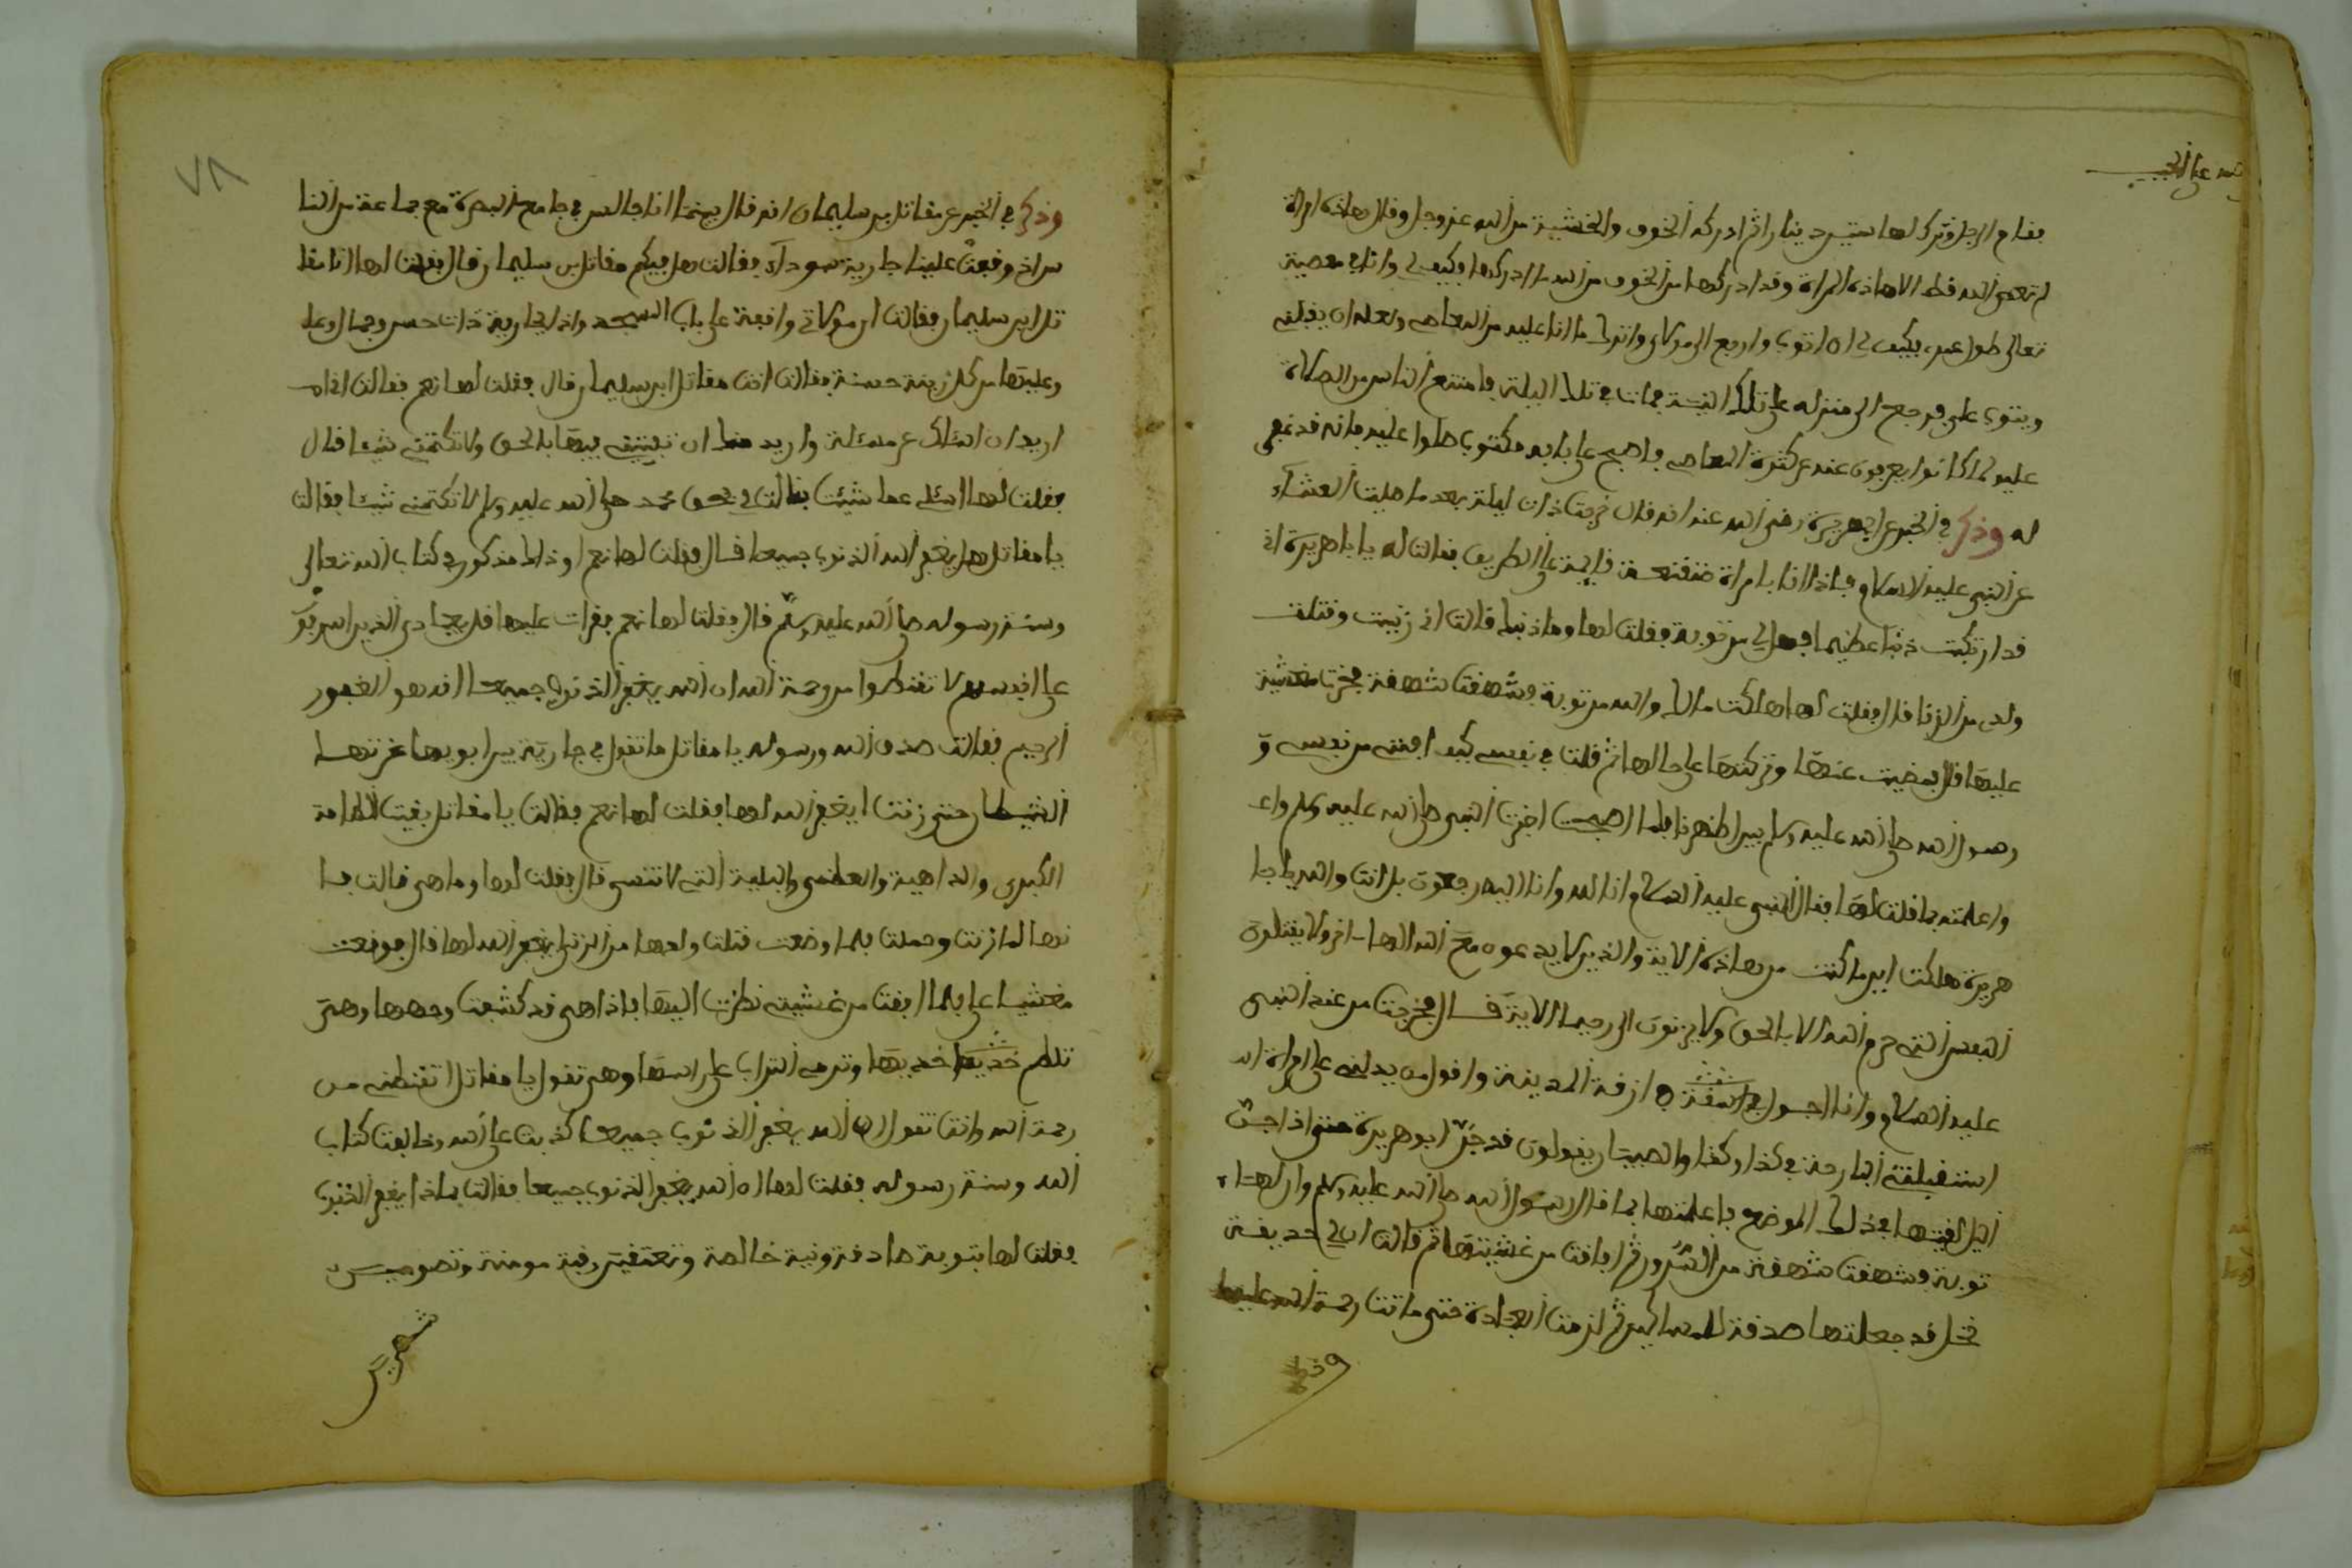 فقام الرجل وترك لها ستين دينارا ثم ادركه الخوف والخشية من الله عز وجل وقال هاذه امراة
لم تعص الله قط الا هاذه المراة وقد ادركها من الخوف من الله ما ادركها فكيف لي وانا في معصية
تعالى طول عمري فكيف لي ان اتوب وارجع الى مولاي واترك ما انا عليه من المعاصي ولعله ان يقبلني
ويتوب علي فرجع الى منزله على تلك النية فمات في تلك الليلة فامتنع الناس من الصلاة
عليه لما كانوا يعرفون عنده كثرة المعاصي فاصبح على بابه مكتوب صلوا عليه فانه قد غفر
له وذكر في الخبر عن ابي هريرة رضي الله عنه انه قال خرجت ذات ليلة بعد ما صليت العشاء
مع النبي عليه السلام فاذا انا بامراة متقنعة قايمة على الطريق فقالت له يا ابا هريرة اني
قد ارتكبت ذنبا عظيما فهل لي من توبة فقلت لها وما ذنبك قالت اني زنيت وقتلت
ولدي من الزنا قال فقلت لها هلكت مالك والله من توبة فشهقت شهقة فخرت مغشية
عليها قال فمضيت عنها وتركتها على حالها ثم قلت في نفسي كيف افتي من نفسي و
رسول الله صلى الله عليه وسلم بين اظهرنا فلما اصبحت اخبرت النبي صلى الله عليه وسلم واع
واعلمته بما قلت لها فقال النبي عليه السلام انا لله وانا اليه راجعون بل انت والله يا ابا
هريرة هلكت اين ما كنت من هاذه الاية والذين لا يدعون مع الله الها اخر ولا يقتلون
النفس التي حرم الله الا بالحق ولا يزنون الى رحيما الاية قال فخرجت من عند النبي
عليه السلام وانا اجول في ازقة المدينة واقول من يدلني على امراة
استقبلتني البارحة في كذا وكذا والصبيان يقولون قد جن ابو هريرة حتى اذا جن
اليل لقيتها في ذلك الموضع فاعلمتها بما قال رسول الله صلى الله عليه وسلم وان لها
توبة فشهقت شهقة من السرور ثم افاقت من غشيتها ثم قالت ان لي حديقة
نخل قد جعلتها صدقة للمساكين ثم لزمت العبادة حتى ماتت رحمة الله عليها
وذكر
٧٨
وذكر في الخبر عن مقاتل بن سليمان انه قال بينما انا جالس في جامع البصرة مع جماعة من النا
س اذ وقعت علينا جارية سوداء فقالت هل فيكم مقاتل بن سليمان قال فقلت لها انا مقا
تل ابن سليمان فقالت ان مولاتي واقفة على باب المسجد واذا بجارية ذات حسن وجمال وعليها
وعليها من كل زينة حسنة فقالت انت مقاتل ابن سليمان قال فقلت لها نعم فقالت اني
اريد ان اسئلك عن مسئلة واريد منك ان تفتيني فيها بالحق ولا تكتمني شيئا قال
فقلت لها اسئلي عما شئت فقالت لي بحق محمد صلى الله عليه وسلم لا تكتمني شيئا فقالت
يا مقاتل هل يغفر الله الذنوب جميعا قال فقلت لها نعم او ذلك مذكور في كتاب الله تعالى
وسنة رسوله صلى الله عليه وسلم قال فقلت لها نعم فقرات عليها قل يعبادي الذين اسرفوا
على انفسهم لا تقنطوا من رحمة الله ان الله يغفر الذنوب جميعا انه هو الغفور
الرحيم فقالت صدق الله ورسوله يا مقاتل ما تقول في جارية بين ابويها غرتها
الشيطان حتى زنت ايغفر الله لها فقلت لها نعم فقالت يا مقاتل بقيت الطامة
الكبرى والداهية والعظمى والبلية التي لا تنسى قال فقلت لها وما هي قالت فا
نها لما زنت وحملت فلما وضعت قتلت ولدها من الزنا ايغفر الله لها قال فوقعت
مغشيا علي فلما افقت من غشيتي نظرت اليها فاذا هي قد كشفت وجهها وهي
تلطم خديها وترمي التراب على راسها وهي تقول يا مقاتل اتقنطني من
رحمة الله وانت تقول ان الله يغفر الذنوب جميعا كذبت على الله وخالفت كتاب
الله وسنة رسوله فقلت لها ان الله يغفر الذنوب جميعا فقالت بماذا يغفر الذنوب
فقلت لها بتوبة صادقة ونية خالصة وتعتقين رقبة مومنة وتصومين
شهرين